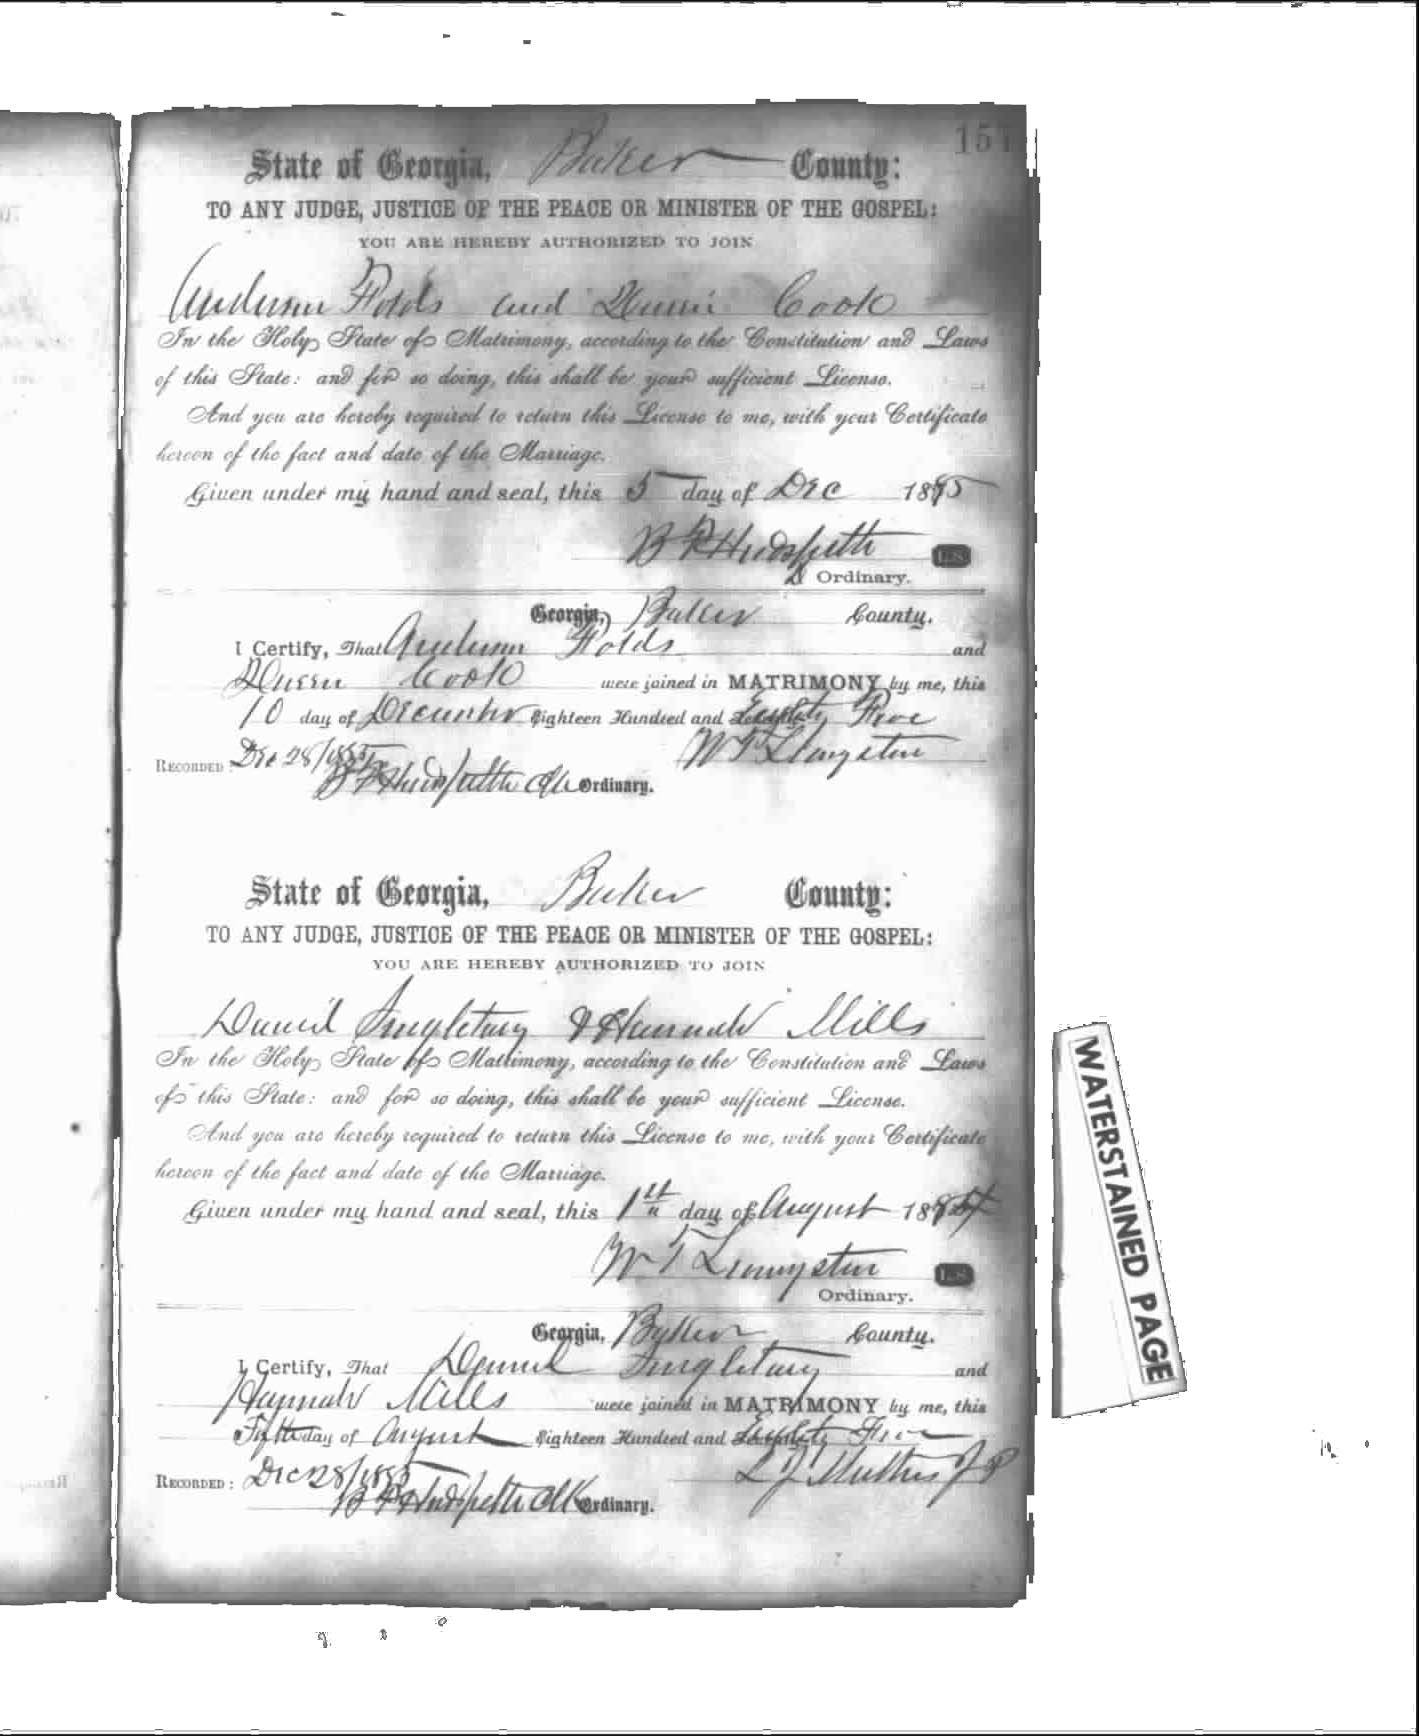 151
State of Georgia, Baker County:
TO ANY JUDGE, JUSTICE OF THE PEACE OR MINISTER OF THE GOSPEL:
YOU ARE HEREBY AUTHORIZED TO JOIN
Anderson Folds and Cook
In the Holy State of Matrimony, according to the Constitution and Laws
of this State: and for so doing, this shall be your sufficient License.
And you are hereby required to return this License to me, with your Certificate
hereon of the fact and date of the Marriage.
Given under my hand and seal, this 5 day of Dec 1885
B F Hudspeth L.S.
Ordinary.
Georgia, Baker County.
I Certify, That Anderson Folds and
Cook were joined in MATRIMONY by me, this
10 day of December Eighteen Hundred and Eighty Five
W T Livingston
RECORDED: Dec 28/1885
B F Hudspeth Clk Ordinary.
State of Georgia, Baker County:
TO ANY JUDGE, JUSTICE OF THE PEACE OR MINISTER OF THE GOSPEL:
YOU ARE HEREBY AUTHORIZED TO JOIN
Daniel Singletary & Hannah Mills
In the Holy State of Matrimony, according to the Constitution and Laws
of this State: and for so doing, this shall be your sufficient License.
And you are hereby required to return this License to me, with your Certificate
hereon of the fact and date of the Marriage.
Given under my hand and seal, this 1st day of August 188
W T Livingston L.S.
Ordinary.
Georgia, Baker County.
I Certify, That Daniel Singletary and
Hannah Mills were joined in MATRIMONY by me, this
Fifth day of August Eighteen Hundred and Eighty Five
J P
RECORDED: Dec 28/1885
B F Hudspeth Clk Ordinary.
WATERSTAINED PAGE